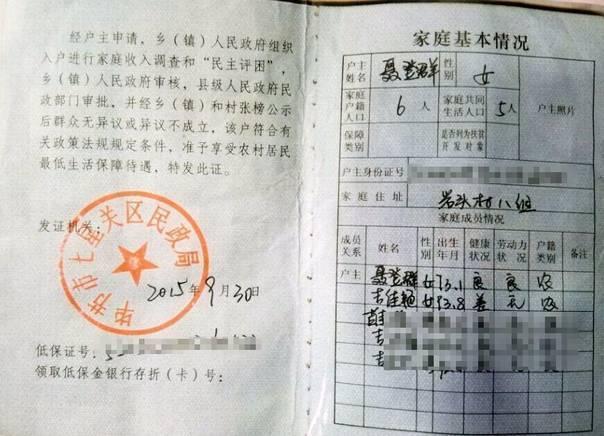 经户主申请，乡（镇）人民政府组织
入户进行家庭收入调查和“民主评困”，
乡（镇）人民政府审核，县级人民政府民
政部门审批，并经乡（镇）和村张榜公示
后群众无异议或异议不成立，该户符合有
关政策法规规定条件，准予享受农村居民
最低生活保障待遇，特发此证。
发证机关：
毕节市七星关区民政局
2015年9月30日
低保证号：5
领取低保金银行存折（卡）号：
家庭基本情况
户主姓名 聂登群 性别 女 户主照片
家庭户籍人口 6人 家庭共同生活人口 5人
保障类别 是否列为扶贫开发对象
户主身份证号
家庭住址 岩头村八组
家庭成员情况
成员关系 姓名 性别 出生年月 健康状况 劳动力状况 户籍类别 备注
户主 聂登群 女 73.1 良 良 农
吉佳 女 93.8 差 无 农
吉
吉